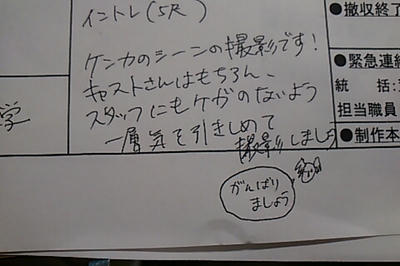 イントレ(5尺)
ケンカのシーンの撮影です!
キャストさんはもちろん、
スタッフにもケガのないよう
一層気を引きしめて
撮影しましょう
がんばり
ましょう
学
●撤収終了
●緊急連絡
統 括:
担当職員
●制作本